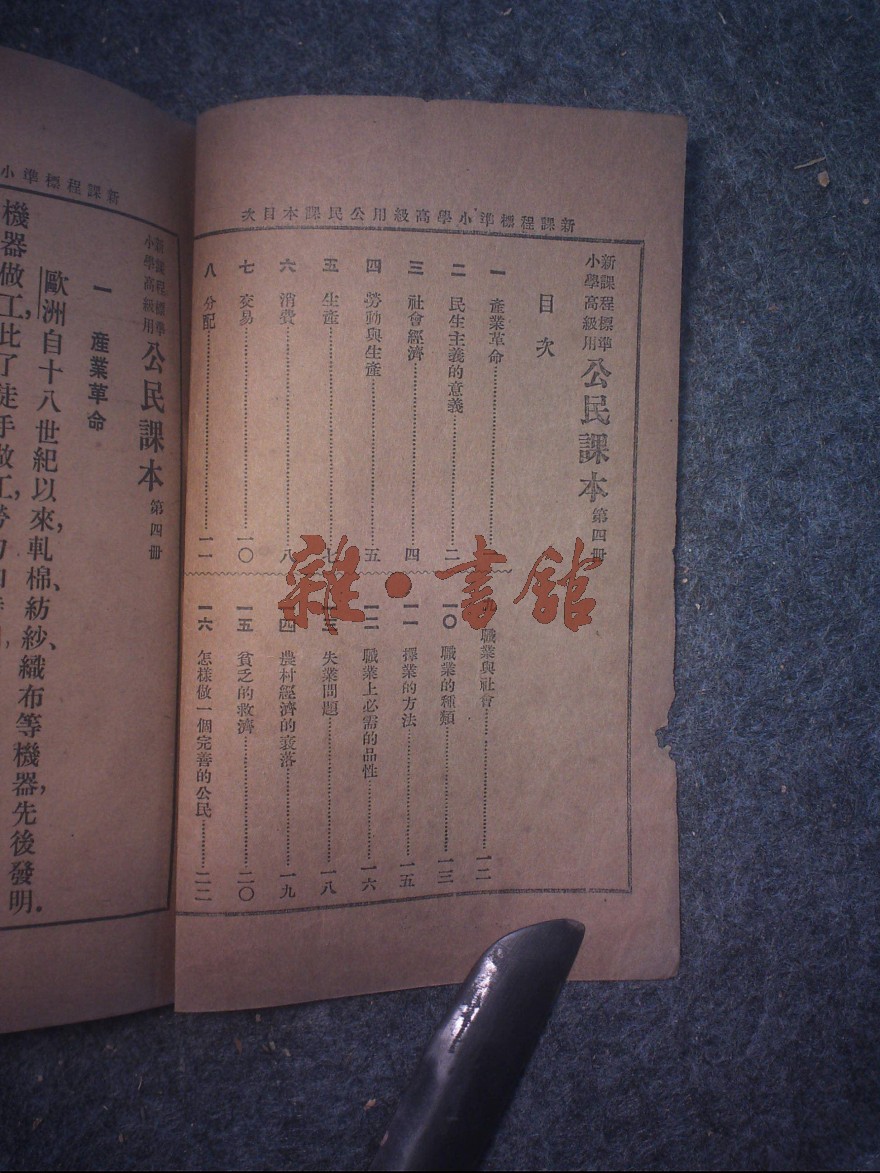 新課程標準小學高級用公民課本目次
新課程標準
小學高級用
公民課本 第四冊
目次
一 產業革命
二 民生主義的意義 二
三 社會經濟 四
四 勞動與生產 五
五 生產 七
六 消費 八
七 交易 一〇
八 分配 一一
職業與社會 一二
一〇 職業的種類 一三
一一 擇業的方法 一五
一二 職業上必需的品性 一六
一三 失業問題 一八
一四 農村經濟的衰落 一九
一五 貧乏的救濟 二〇
一六 怎樣做一個完善的公民 二二
雜·書館
新課程標準小
新課程標準
小學高級用
公民課本 第四冊
一 產業革命
歐洲自十八世紀以來,軋棉、紡紗、織布等機器,先後發明.
機器做工,比了徒手做工,